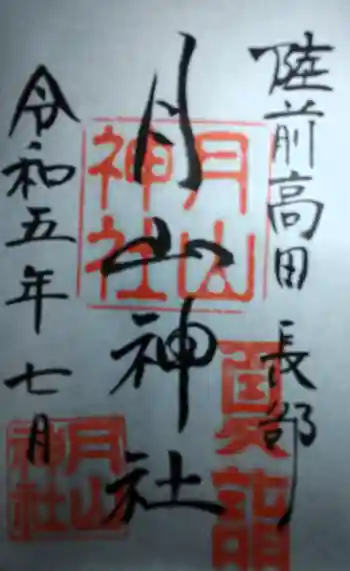 陸前高田 長部
月山神社
令和五年 七月
月山神社
眞詣
月山神社